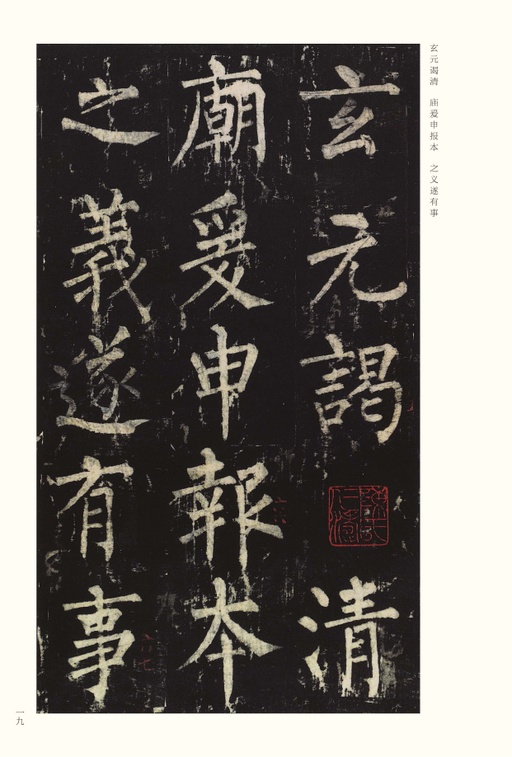 玄元谒清　庙爰申报本　之义遂有事
玄元謁清
廟爰申報本
之義遂有事
一九